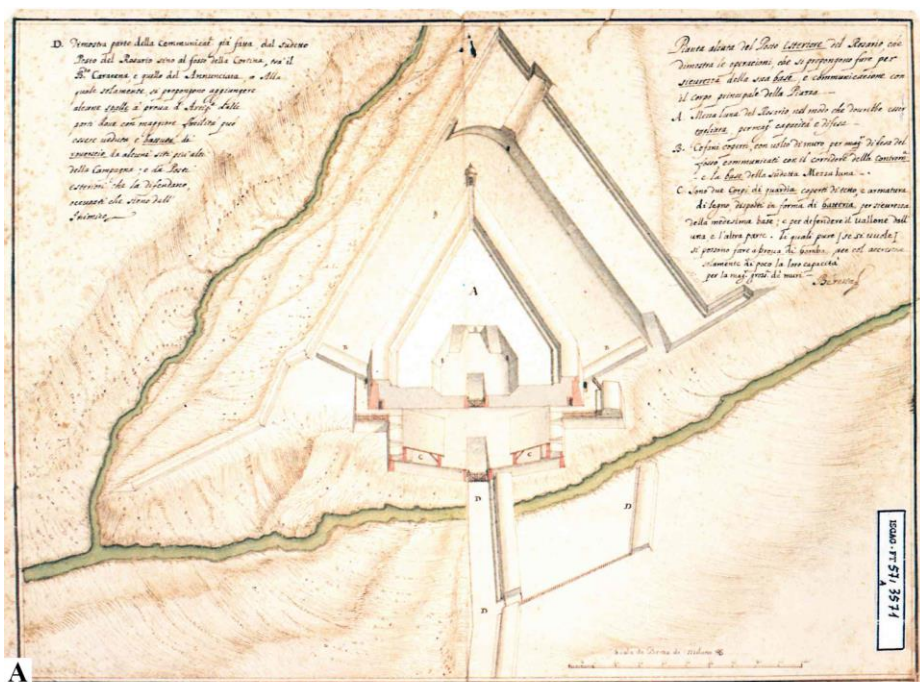 D. Dimostra parte della Communicat. già fatta dal sudetto
Posto del Rosario sino al fosso della Cortina, trà il
B.ne Caracena e quello del Annunciata, o Alla
quale solamente, si propongono aggiungere
alcune spalle à prova d'Artig. dalle
parti dove con maggiore facilità può
essere veduto e battuto di
rovescio da alcuni siti più alti
della Campagna; o da Posti
esteriori che la difendano,
occupati che siano dall'
Inimico
Pianta alzata del Posto Esteriore del Rosario che
dimostra le operationi, che si propongono fare per
sicurezza della sua base, e communicatione con
il corpo principale della Piazza.
A. Meza luna del Rosario nel modo che dourebbe esser
per mag. capacità e difesa
B. Cofani coperti, con volto di muro per mag. difesa del
fosso, communicati con il corridore della
e la base della sudetta Meza luna.
C. Sono due Corpi di guardia, coperti di tetto, e armatura
di legno disposti in forma di batteria, per sicurezza
della medesima base; e per defendere il vallone dall'
una e l'altra parte. Li quali pure [se si vuole]
si possono fare à prova di bomba, con
di poco la loro capacità
per la mag. gros. di muri
Beretta
A
B
B
C
C
D
D
D
Scala di
ISCAG-FT 57/ 3571
A
A